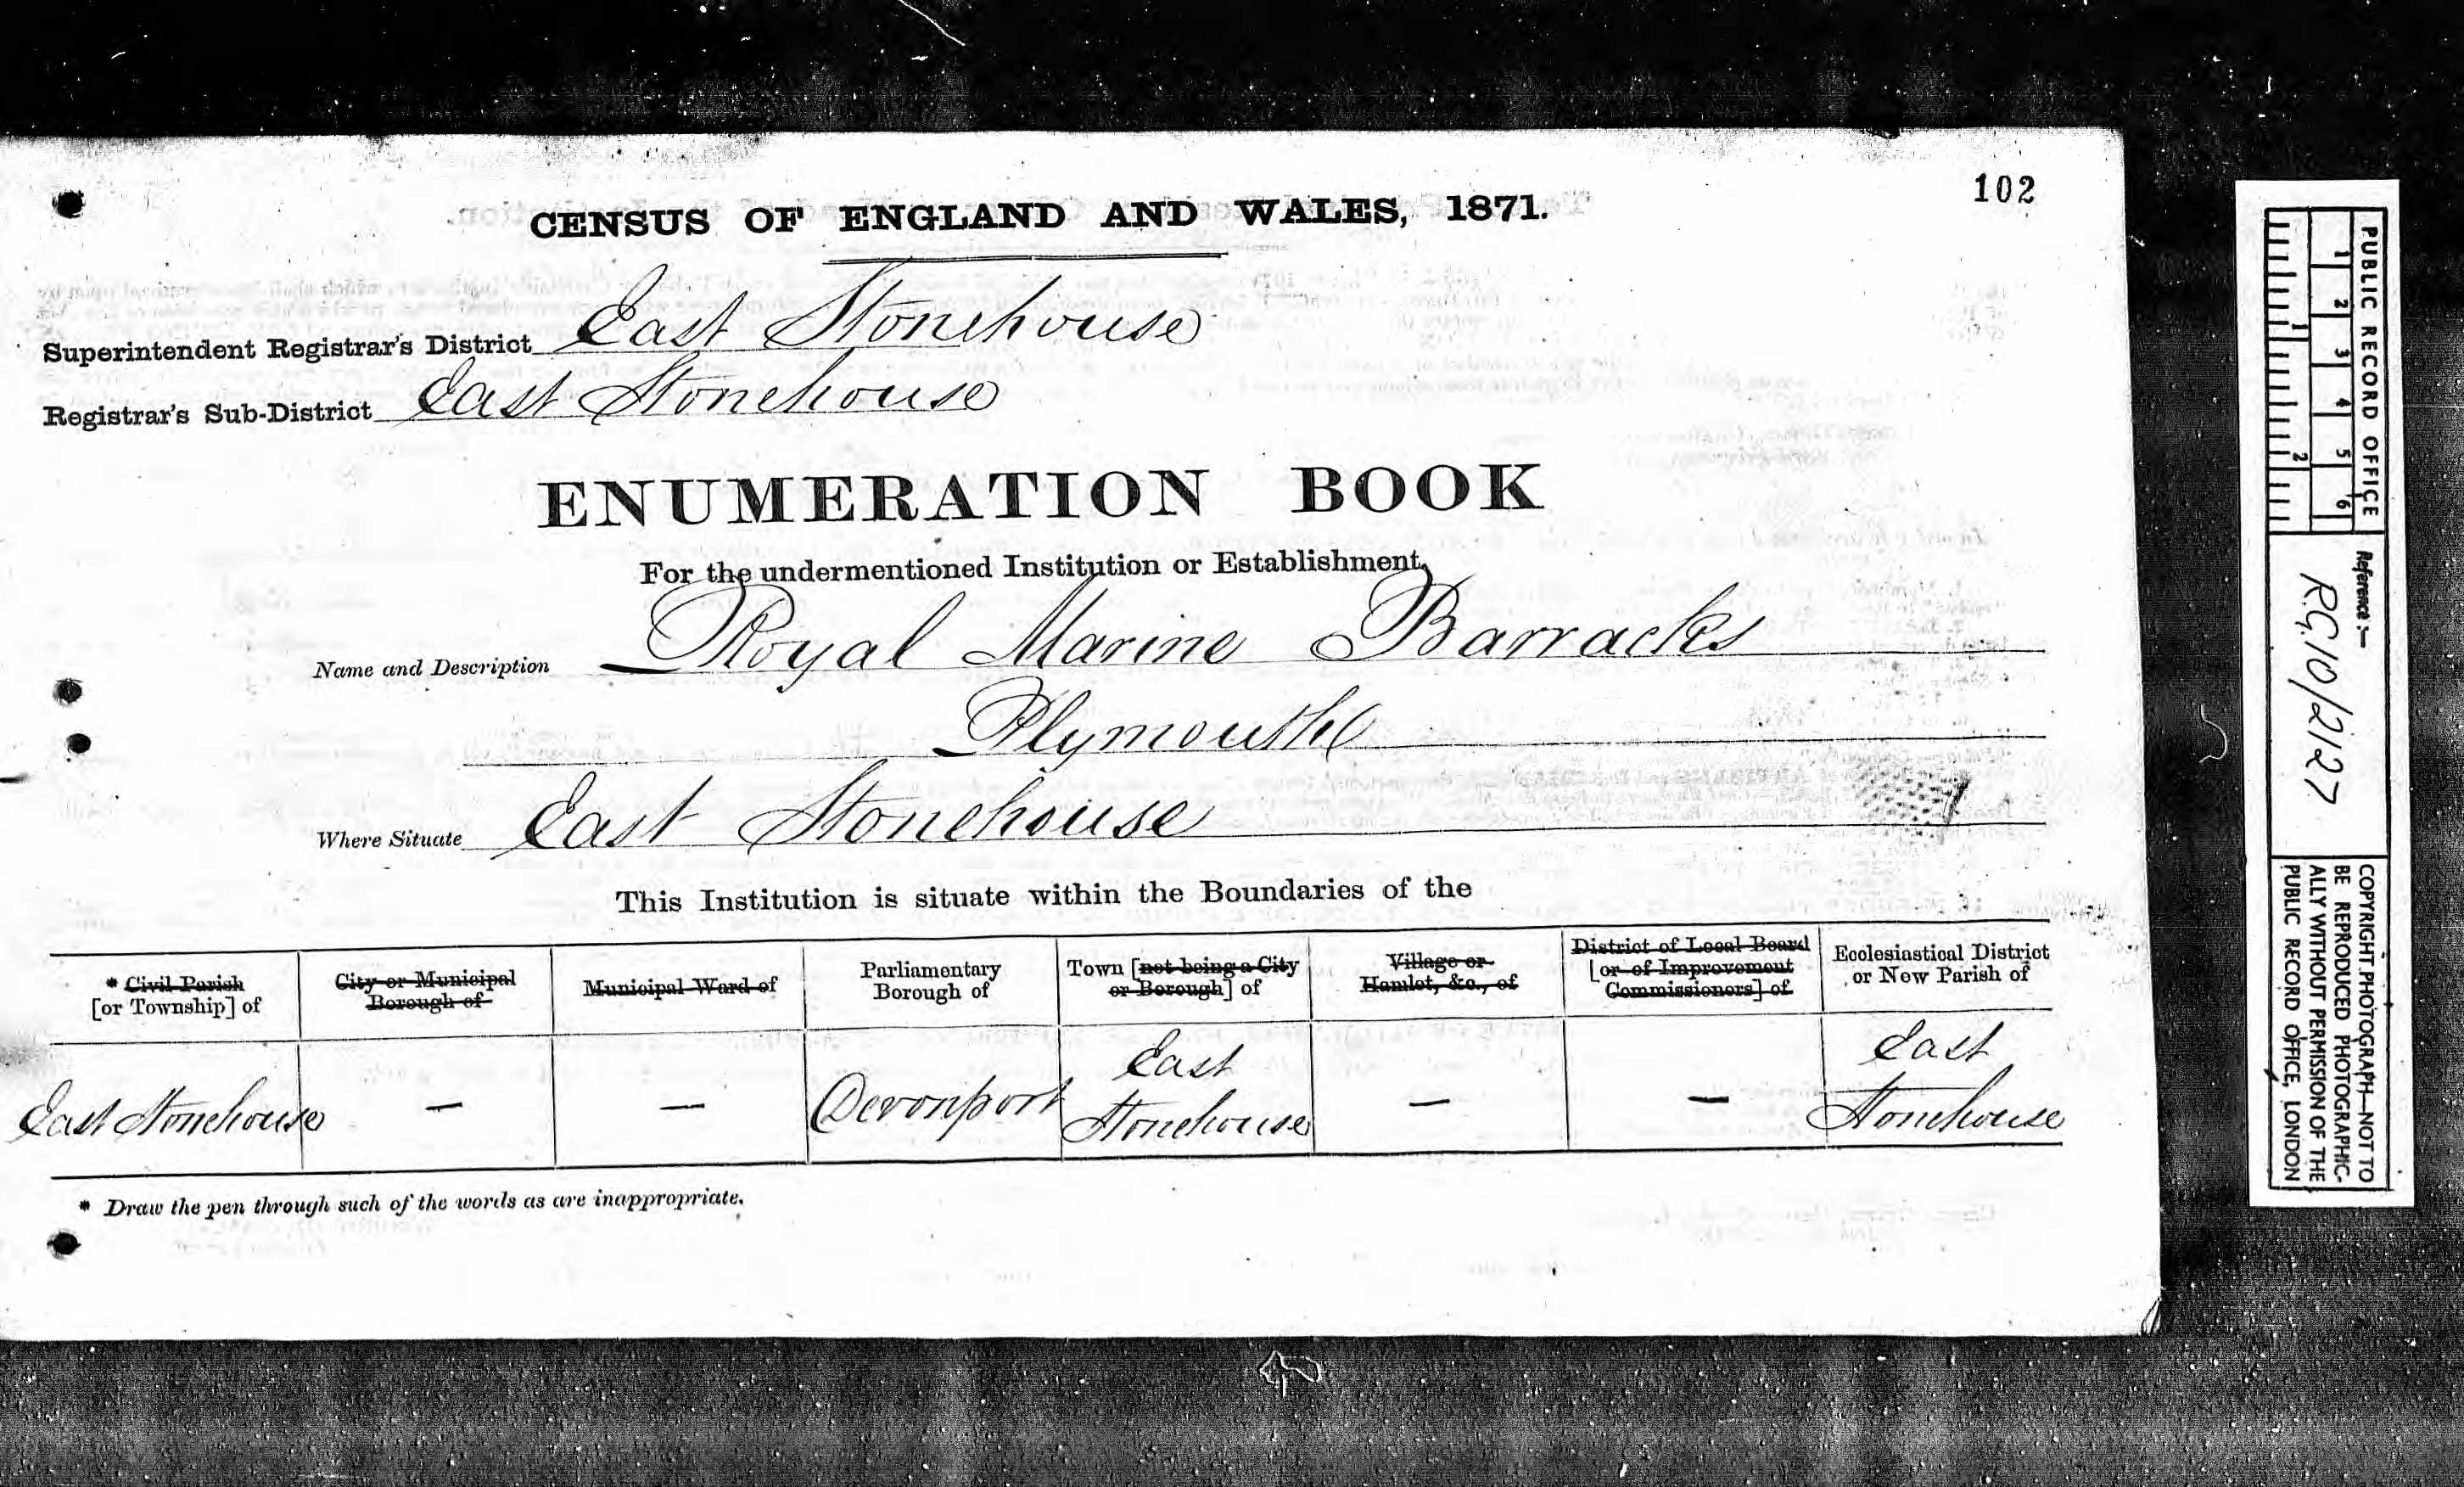 102
CENSUS OF ENGLAND AND WALES, 1871.
Superintendent Registrar's District East Stonehouse
Registrar's Sub-District East Stonehouse
ENUMERATION BOOK
For the undermentioned Institution or Establishment,
Name and Description Royal Marine Barracks
Plymouth
Where Situate East Stonehouse
This Institution is situate within the Boundaries of the
* Civil Parish
[or Township] of
City or Municipal
Borough of
Municipal Ward of
Parliamentary
Borough of
Town [not being a City
or Borough] of
Village or
Hamlet, &c., of
District of Local Board
[or of Improvement
Commissioners] of
Ecclesiastical District
or New Parish of
East Stonehouse
—
—
Devonport
East
Stonehouse
—
—
East
Stonehouse
* Draw the pen through such of the words as are inappropriate.
PUBLIC RECORD OFFICE
1 2 3 4 5 6
1 2
Reference :—
R.G. 10/2127
COPYRIGHT PHOTOGRAPH—NOT TO
BE REPRODUCED PHOTOGRAPHIC-
ALLY WITHOUT PERMISSION OF THE
PUBLIC RECORD OFFICE, LONDON